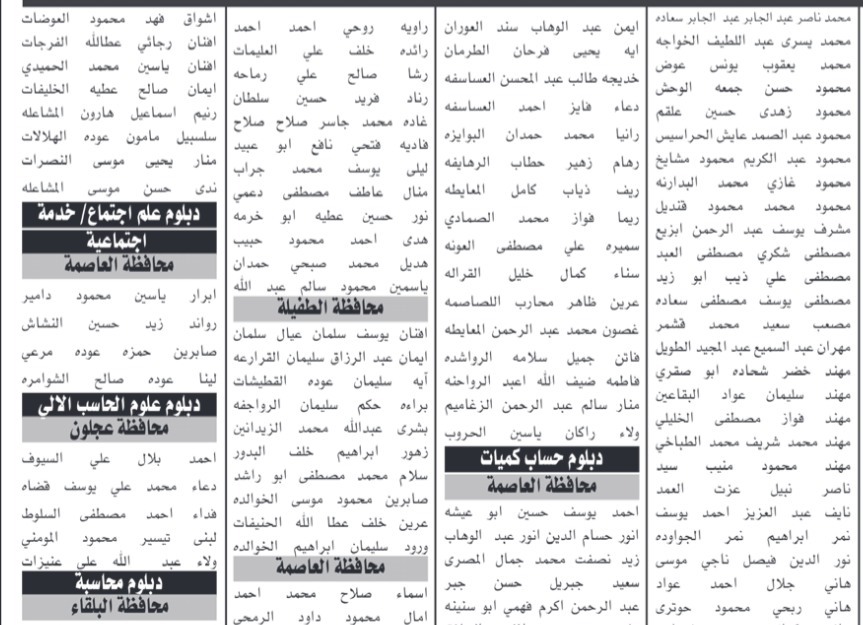 محمد ناصر عبد الجابر عبد الجابر سعاده
محمد يسرى عبد اللطيف الخواجه
محمد يعقوب يونس عوض
محمود حسن جمعه الوحش
محمود زهدى حسين علقم
محمود عبد الصمد عايش الحراسيس
محمود عبد الكريم محمود مشايخ
محمود غازي محمد البدارنه
محمود محمد محمود قنديل
مشرف يوسف عبد الرحمن ابزيع
مصطفى شكري مصطفى العبد
مصطفى علي ذيب ابو زيد
مصطفى يوسف مصطفى سعاده
مصعب سعيد محمد قشمر
مهران عبد السميع عبد المجيد الطويل
مهند خضر شحاده ابو صقري
مهند سليمان عواد البقاعين
مهند فواز مصطفى الخليلي
مهند محمد شريف محمد الطباخي
مهند محمود منيب سيد
ناصر نبيل عزت العمد
نايف عبد العزيز احمد يوسف
نمر ابراهيم نمر الجواوده
نور الدين فيصل ناجي موسى
هاني جلال احمد عواد
هاني ربحي محمود حوترى
ايمن عبد الوهاب سند العوران
ايه يحيى فرحان الطرمان
خديجه طالب عبد المحسن العساسفه
دعاء فايز احمد العساسفه
رانيا محمد حمدان البوايزه
رهام زهير حطاب الرهايفه
ريف ذياب كامل المعايطه
ريما فواز محمد الصمادي
سميره علي مصطفى العونه
سناء كمال خليل القراله
عرين ظاهر محارب اللصاصمه
غصون محمد عبد الرحمن المعايطه
فاتن جميل سلامه الرواشده
فاطمه ضيف الله اعبد الرواحنه
منار سالم عبد الرحمن الزغاميم
ولاء راكان ياسين الحروب
دبلوم حساب كميات
محافظة العاصمة
احمد يوسف حسين ابو عيشه
انور حسام الدين انور عبد الوهاب
زيد نصفت محمد جمال المصرى
سعيد جبريل حسن جبر
عبد الرحمن اكرم فهمي ابو سنينه
راويه روحي احمد احمد
رائده خلف علي العليمات
رشا صالح علي رماحه
رناد فريد حسين سلطان
غاده محمد جاسر صلاح صلاح
فاديه فتحي نافع ابو عبيد
ليلى يوسف محمد جراب
منال عاطف مصطفى دعمي
نور حسين عطيه ابو خرمه
هدى احمد محمود حبيب
هديل محمد صبحي حمدان
ياسمين محمود سالم عبد الله
محافظة الطفيلة
افنان يوسف سلمان عيال سلمان
ايمان عبد الرزاق سليمان القرارعه
أيه سليمان عوده القطيشات
براءه حكم سليمان الرواجفه
بشرى عبدالله محمد الزيدانين
زهور ابراهيم خلف البدور
سلام محمد مصطفى ابو راشد
صابرين محمود موسى الخوالده
عرين خلف عطا الله الحنيفات
ورود سليمان ابراهيم الخوالده
محافظة العاصمة
اسماء صلاح محمد احمد
امال محمود داود الرمحي
اشواق فهد محمود العوضات
افنان رجائي عطالله الفرجات
افنان ياسين محمد الحميدي
ايمان صالح عطيه الخليفات
رنيم اسماعيل هارون المشاعله
سلسبيل مامون عوده الهلالات
منار يحيى موسى النصرات
ندى حسن موسى المشاعله
دبلوم علم اجتماع/ خدمة
اجتماعية
محافظة العاصمة
ابرار ياسين محمود دامير
رواند زيد حسين النشاش
صابرين حمزه عوده مرعي
لينا عوده صالح الشوامره
دبلوم علوم الحاسب الالي
محافظة عجلون
احمد بلال علي السيوف
دعاء محمد علي يوسف قضاه
فداء احمد مصطفى السلوط
لبنى تيسير محمود المومني
ولاء عبد الله علي عنيزات
دبلوم محاسبة
محافظة البلقاء